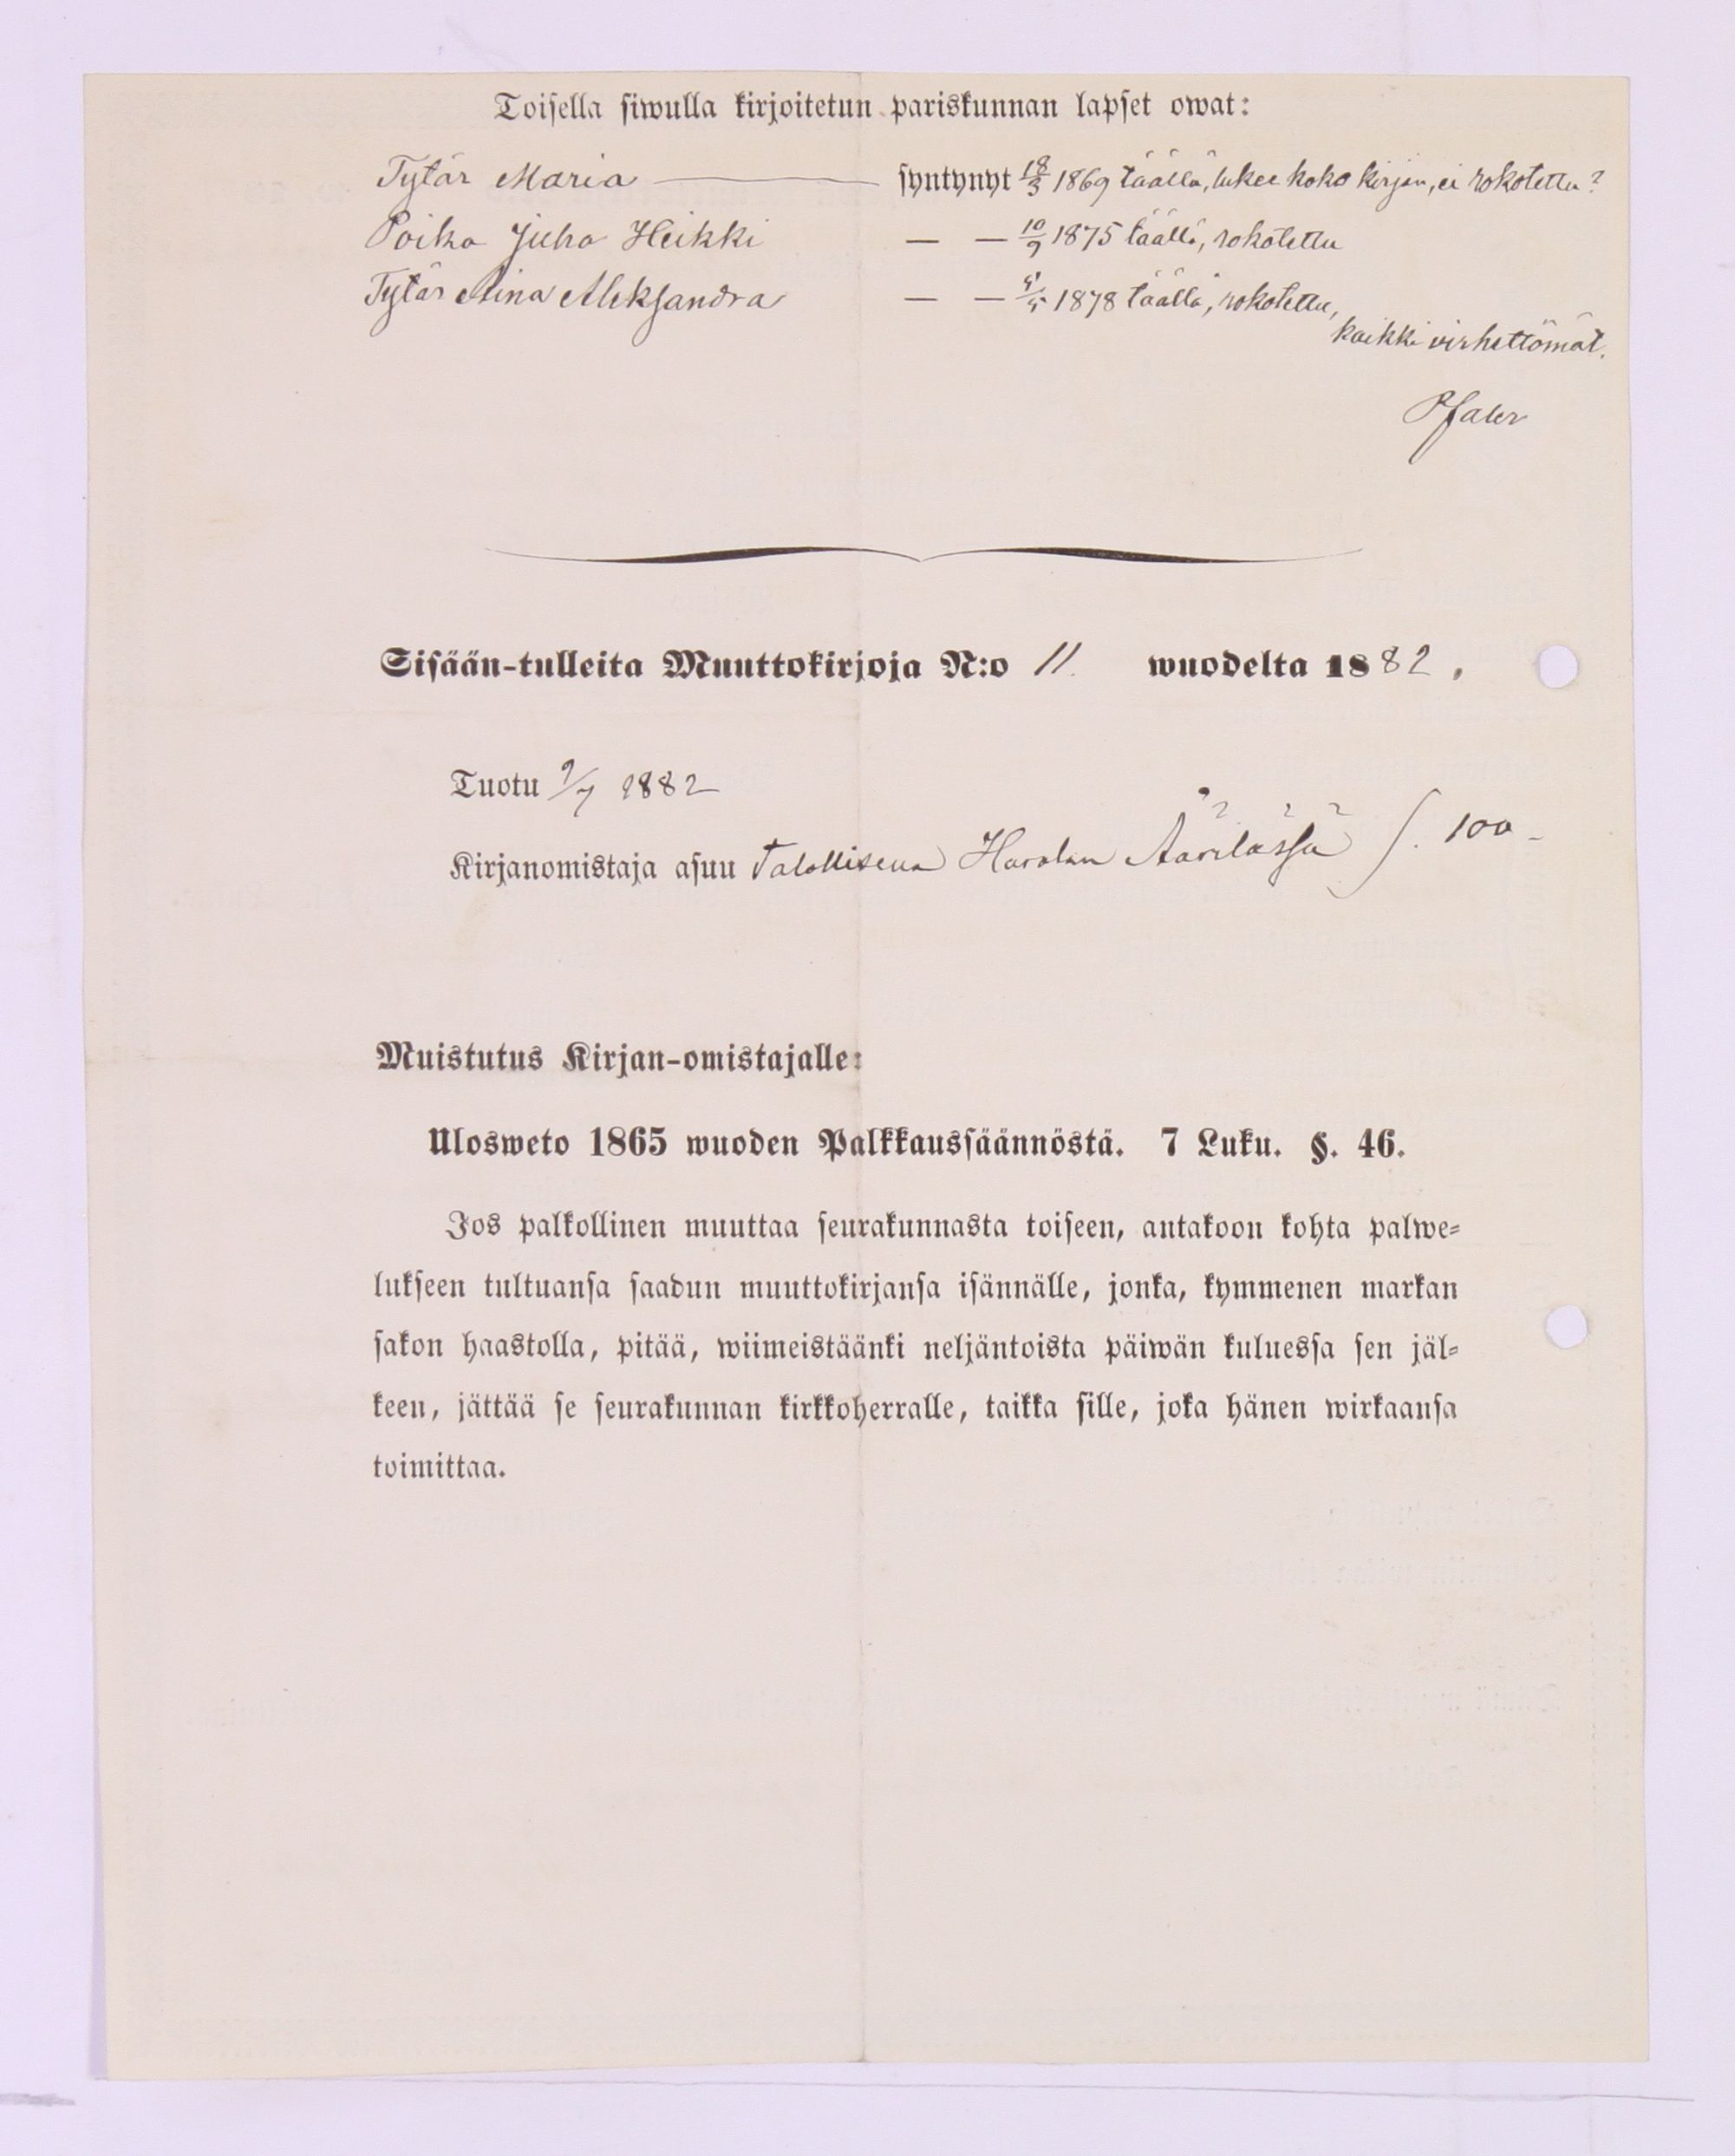 Toisella siwulla kirjoitetun pariskunnan lapset owat:
Tytär Maria — syntynyt 18/3 1869 täällä, lukee koko kirjan, ei rokotettu?
Poika Juho Heikki — — 10/9 1875 täällä, rokotettu
Tytär Aina Aleksandra — — 1878 täällä, rokotettu,
kaikki virhettömät.
Sisään-tulleita Muuttokirjoja N:o 11. wuodelta 1882.
Tuotu 9/7 1882
Kirjanomistaja asuu Talollisena Äärilässä S. 100-
Muistutus Kirjan-omistajalle:
Ulosweto 1865 wuoden Palkkaussäännöstä. 7 Luku. §. 46.
Jos palkollinen muuttaa seurakunnasta toiseen, antakoon kohta palwe=
lukseen tultuansa saadun muuttokirjansa isännälle, jonka, kymmenen markan
sakon haastolla, pitää, wiimeistäänki neljäntoista päiwän kuluessa sen jäl=
keen, jättää se seurakunnan kirkkoherralle, taikka sille, joka hänen wirkaansa
toimittaa.